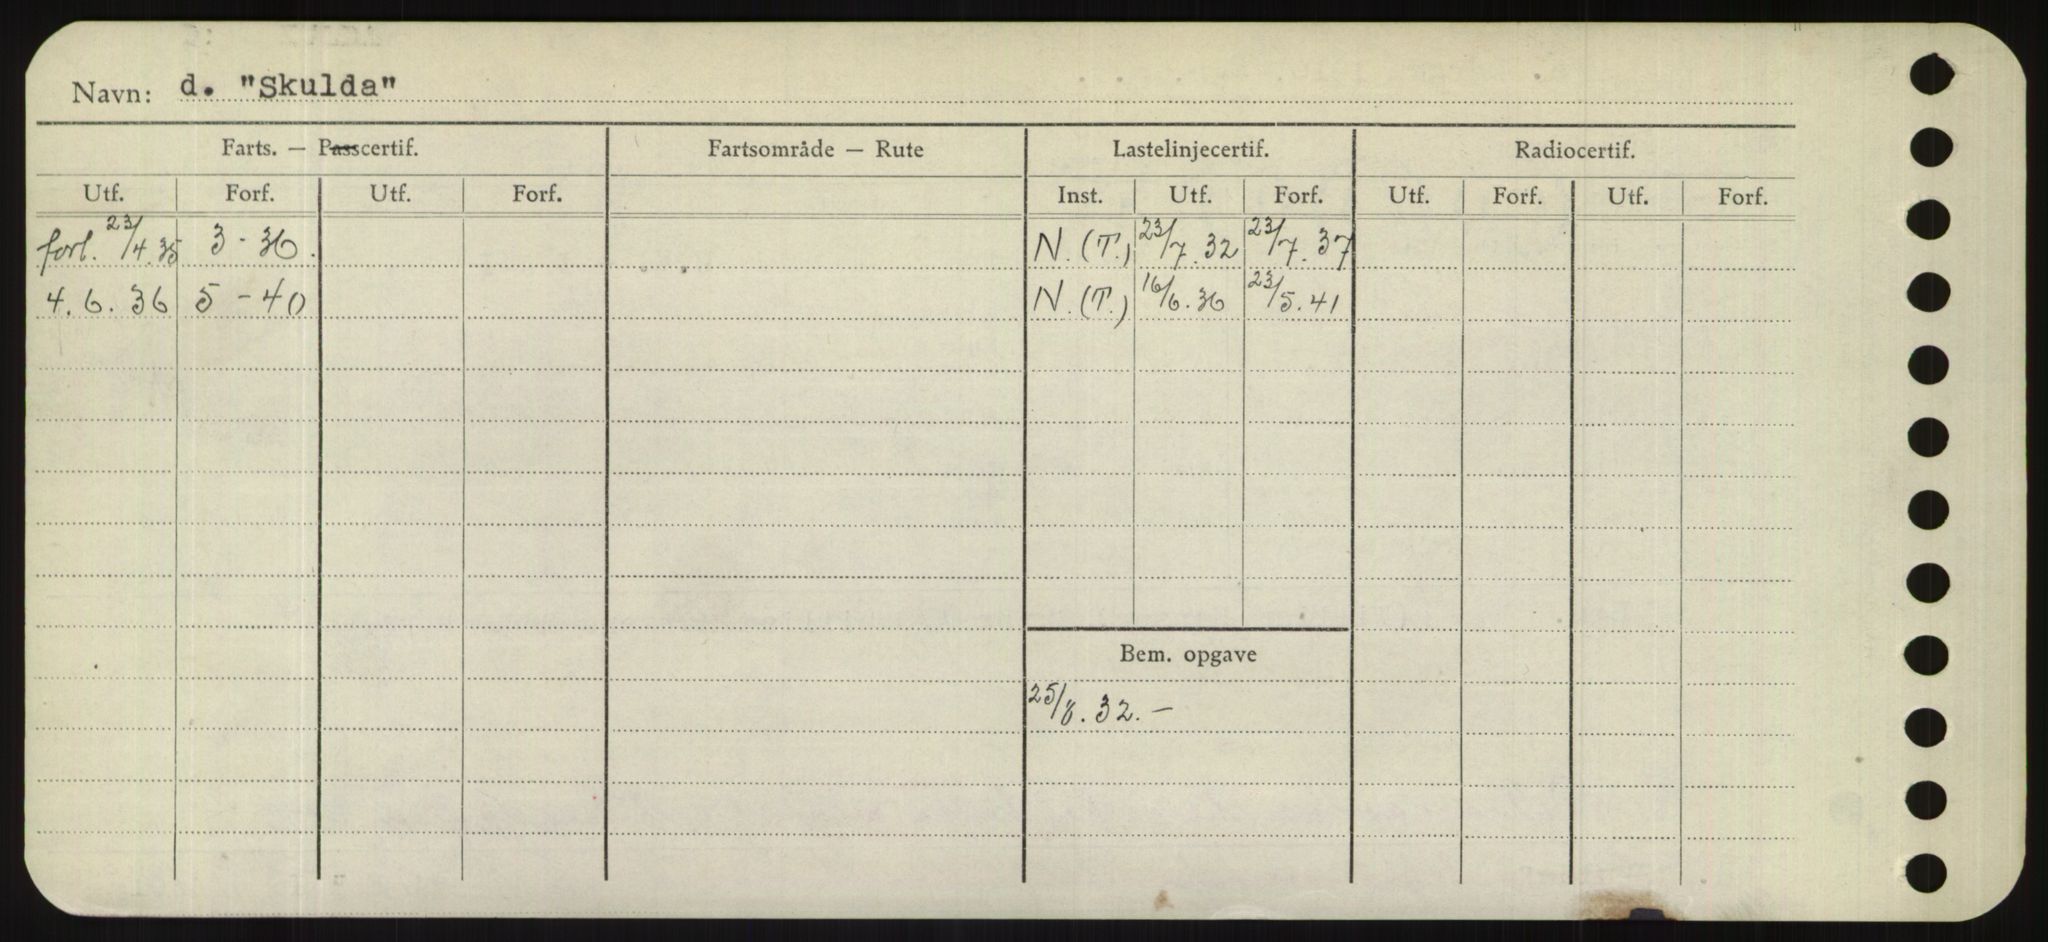 Navn: d. "Skulda"
Farts. — Passcertif. Fartsområde — Rute Lastelinjecertif. Radiocertif.
Utf. Forf. Utf. Forf. Inst. Utf. Forf. Utf. Forf. Utf. Forf.
forl. 23/4.35 3 - 36. N.(T.) 23/7.32 23/7.37
4.6.36 5 - 40 N.(T.) 16/6.36 23/5.41
Bem. opgave
25/8.32.—